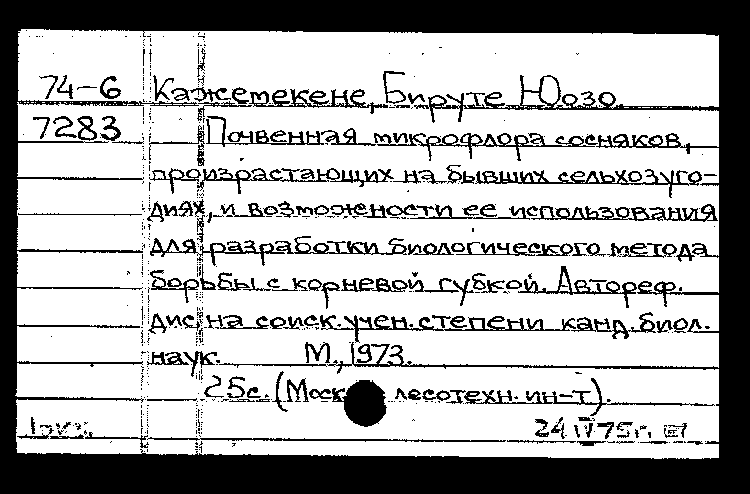 74-6 Кажемекене, Бируте Юозо.
7283 Почвенная микрофлора сосняков,
произрастающих на бывших сельхозуго-
диях, и возможности ее использования
для разработки биологического метода
борьбы с корневой губкой. Автореф.
дис. на соиск. учен. степени канд. биол.
наук. М., 1973.
25с. (Моск. лесотехн. ин-т).
24 IV 75г.